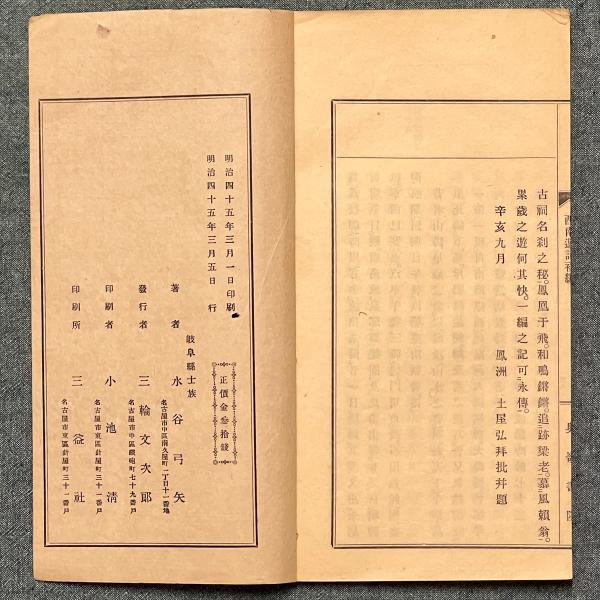 古祠名刹之秘。鳳凰于飛。和鳴鏘鏘。追跡梁老。慕風頼翁。
累歳之遊何其快。一編之記可永傳。
辛亥九月
鳳洲 土屋弘拜批幷題
正價金參拾錢
明治四十五年三月一日印刷
明治四十五年三月五日 行
岐阜縣士族
著者 水谷弓矢
名古屋市中區南久屋町二丁目十一番地
發行者 三輪文次郎
名古屋市中區鐵砲町七十九番戸
印刷者 小池淸
名古屋市東區針屋町三十一番戸
印刷所 三益社
名古屋市東區針屋町三十一番戸